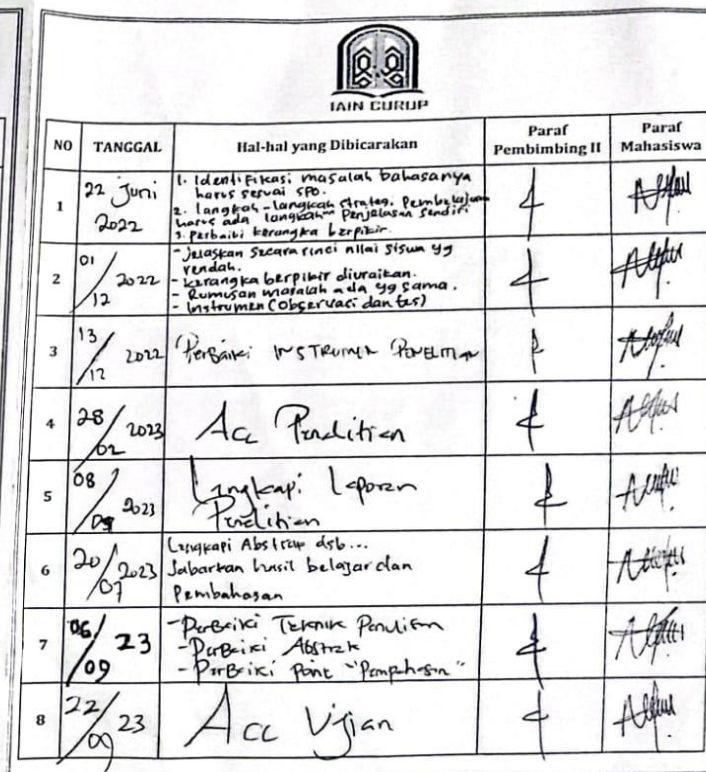 IAIN CURUP
NO TANGGAL Hal-hal yang Dibicarakan Paraf Pembimbing II Paraf Mahasiswa
1 22 Juni 2022
1. Identifikasi masalah bahasanya
harus sesuai SPO.
2. langkah-langkah strategi Pembelajaran
harus ada langkah" Penjelasan sendiri
3. Perbaiki kerangka berpikir.
2 01/12 2022
- jelaskan secara rinci nilai siswa yg
rendah.
- kerangka berpikir diuraikan.
- Rumusan masalah ada yg sama.
- Instrumen (observasi dan tes)
3 13/12 2022 Perbaiki INSTRUMEN PENELITIAN
4 28/02 2023 Acc Penelitian
5 08/ 2023 Lengkapi Laporan
Penelitian
6 20/07 2023
Lengkapi Abstrak dsb...
Jabarkan hasil belajar dan
Pembahasan
7 06/09 23
- Perbaiki Teknik Penulisan
- Perbaiki Abstrak
- Perbaiki Point "Pembahasan"
8 22/09 23 Acc Ujian